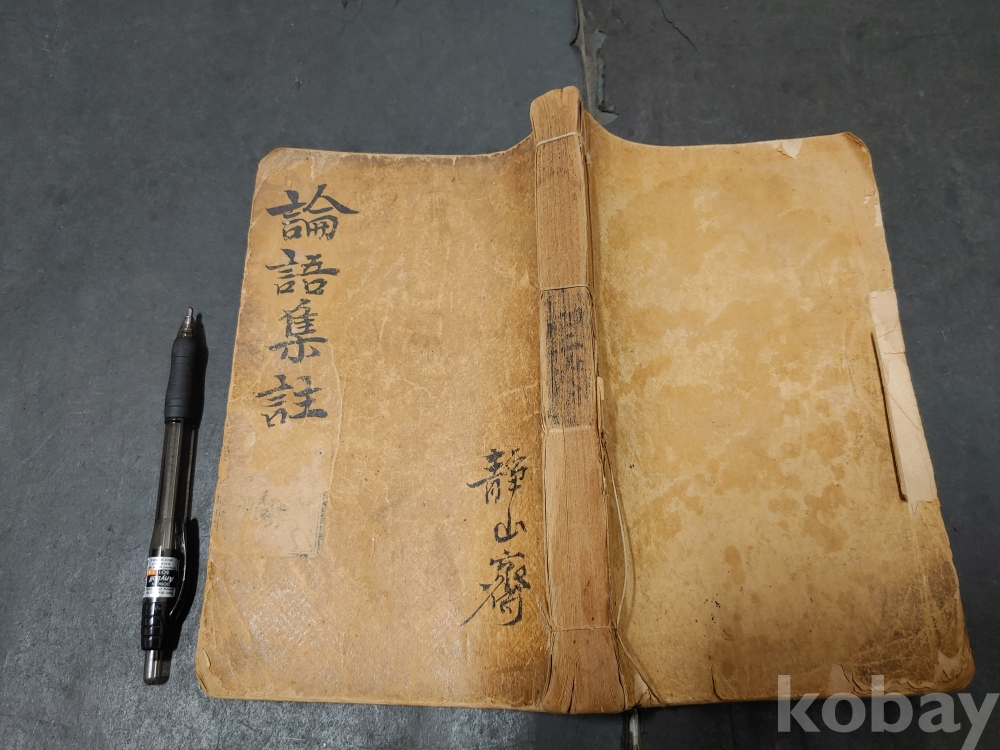 論語集註
靜山齋
Anyball
kobay